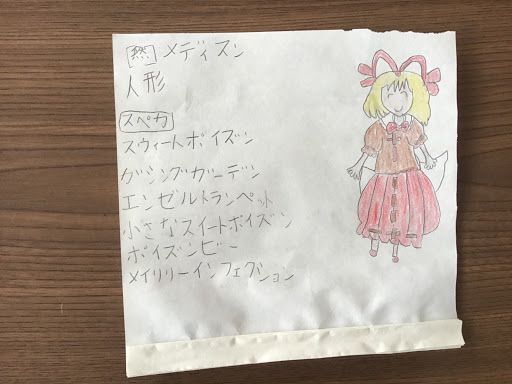 然 メディスン
人形
スペカ
スウィートポイズン
ガシングガーデン
エンゼルトランペット
小さなスイートポイズン
ポイズンビー
メイリリーインフェクション